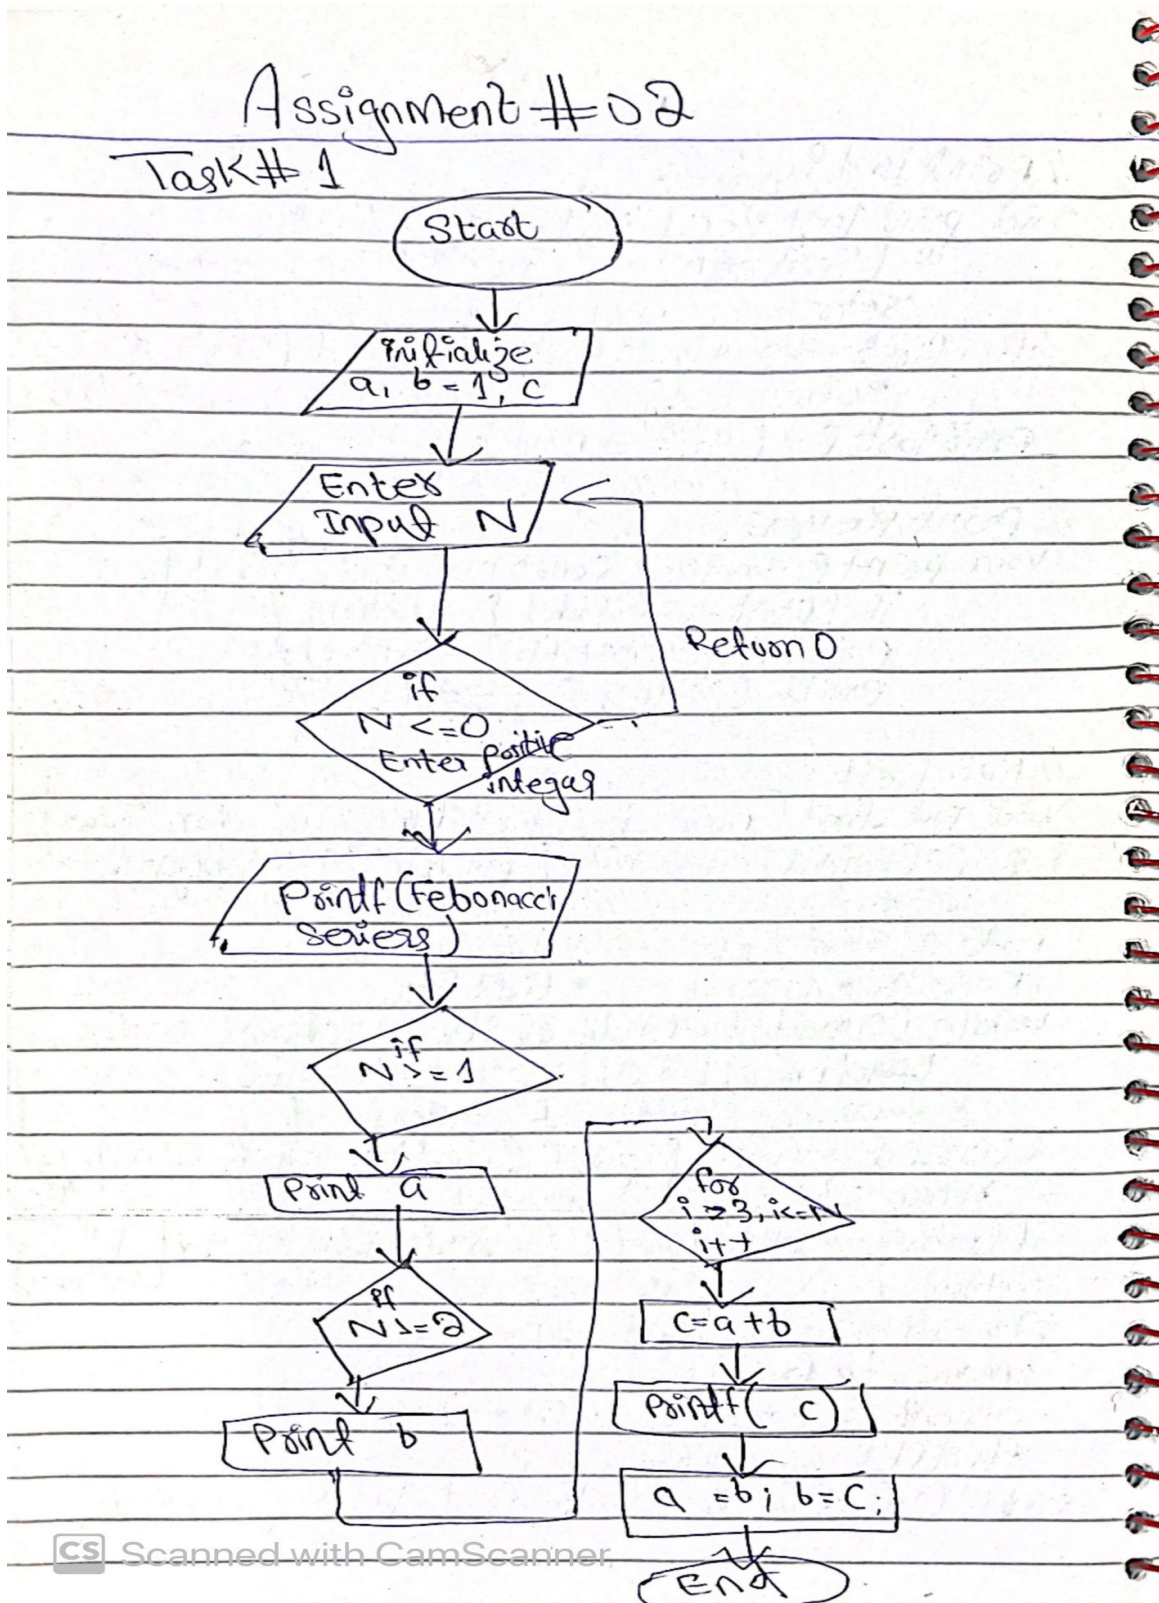 Assignment #02
Task# 1
Start
initialize
a, b = 1, c
Enter
Input N
if
N <= 0
Enter positive
integar
Return 0
Printf (Febonacci
Seriess)
if
N >= 1
Print a
if
N >= 2
Print b
for
i = 3, i<=N
i++
c=a+b
Printf( c)
a = b; b = C;
End
CS Scanned with CamScanner